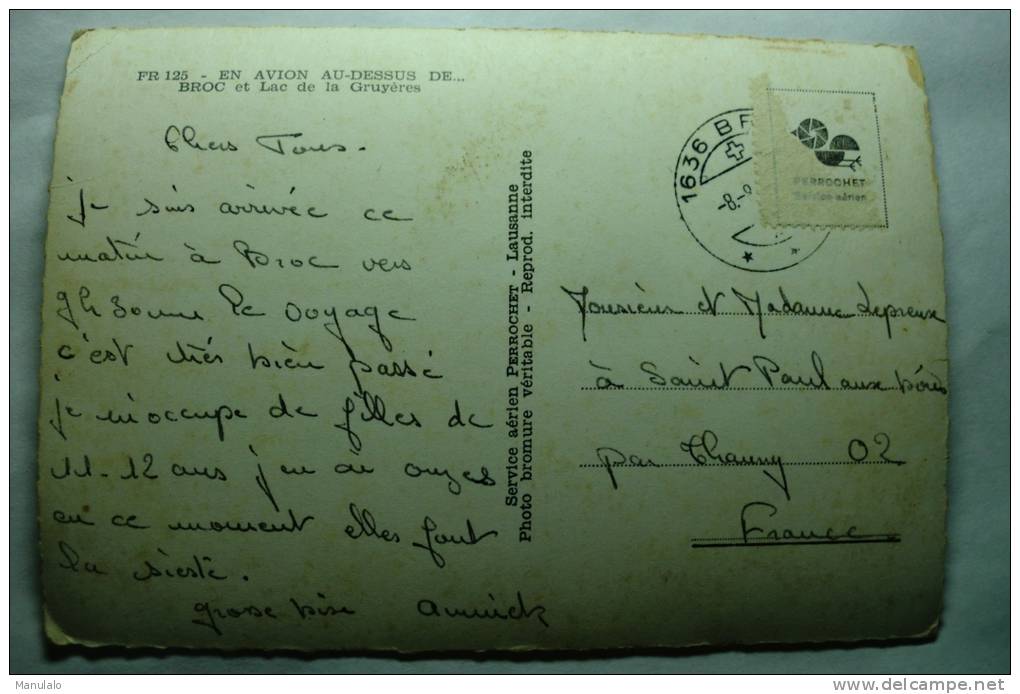 FR 125 - EN AVION AU-DESSUS DE...
BROC et Lac de la Gruyères
Chers Tous.
je suis arrivée ce
matin à Broc vers
9h30 Le voyage
c'est très bien passé
je m'occupe de filles de
11-12 ans j'en ai onzes
en ce moment elles font
la sieste.
grosse bise Annick
Service aérien PERROCHET - Lausanne
Photo bromure véritable - Reprod. interdite
1636 BR
-8.-9
PERROCHET
Service aérien
Monsieur et Madame Lepreux
à Saint Paul aux bois
par Chauny 02
France
Manulalo
www.delcampe.net